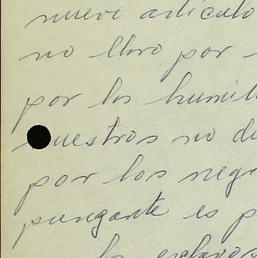 nuevo artículo
no lloro por
por los humil
nuestros no d
por los negr
pungante es p
los esclavos